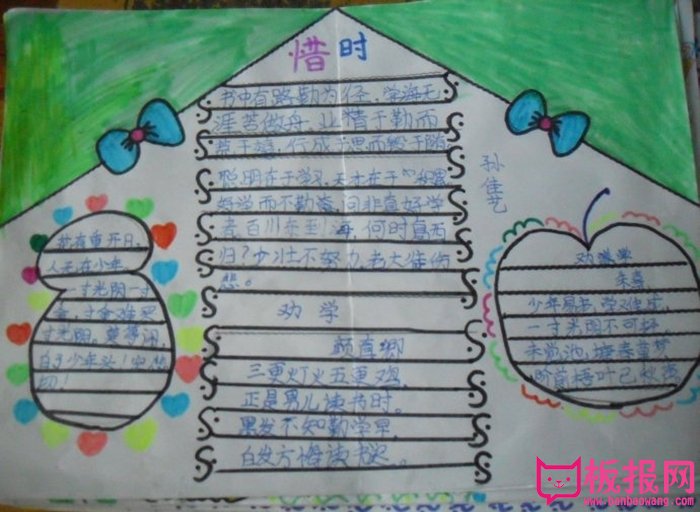 惜时
书中有路勤为径，学海无
涯苦做舟，业精于勤而
荒于嬉，行成于思而毁于随
聪明在于学习，天才在于积累
好学而不勤
问非真好学
者，百川东到海，何时复西
归？少壮不努力，老大徒伤
悲。
劝学
颜真卿
三更灯火五更鸡，
正是男儿读书时。
黑发不知勤学早，
白发方悔读书迟。
孙佳艺
花有重开日，
人无在少年
一寸光阴一寸
金，寸金难买
寸光阴。莫等闲，
白了少年头！空悲
切！
劝学
朱熹
少年易老，学难成，
一寸光阴不可轻，
未觉池塘春草梦
阶前梧叶已秋声
板报网
www.banbaowang.com